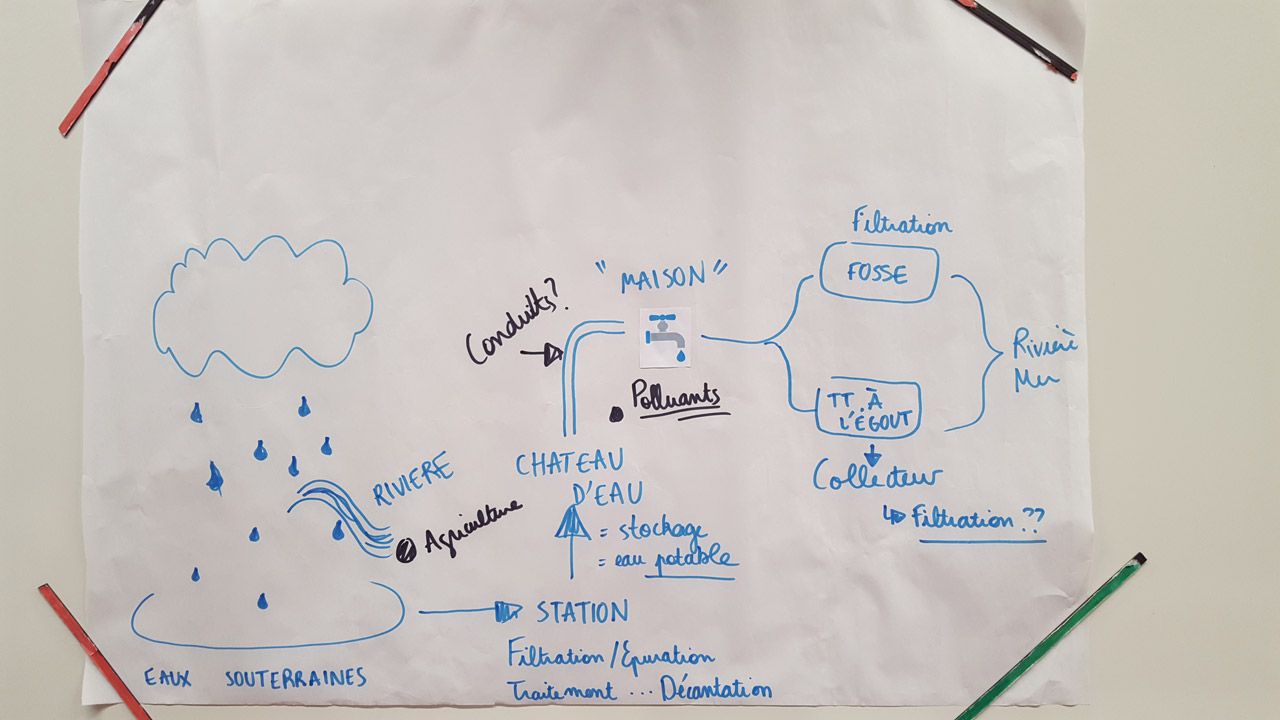 Filtration
FOSSE
"MAISON"
Conduits?
Rivière
Mer
Polluants
TT. À
L'ÉGOUT
Collecteur
↳ Filtration ??
CHATEAU
D'EAU
= stockage
= eau potable
RIVIERE
Agriculture
STATION
Filtration / Épuration
Traitement ... Décantation
EAUX SOUTERRAINES